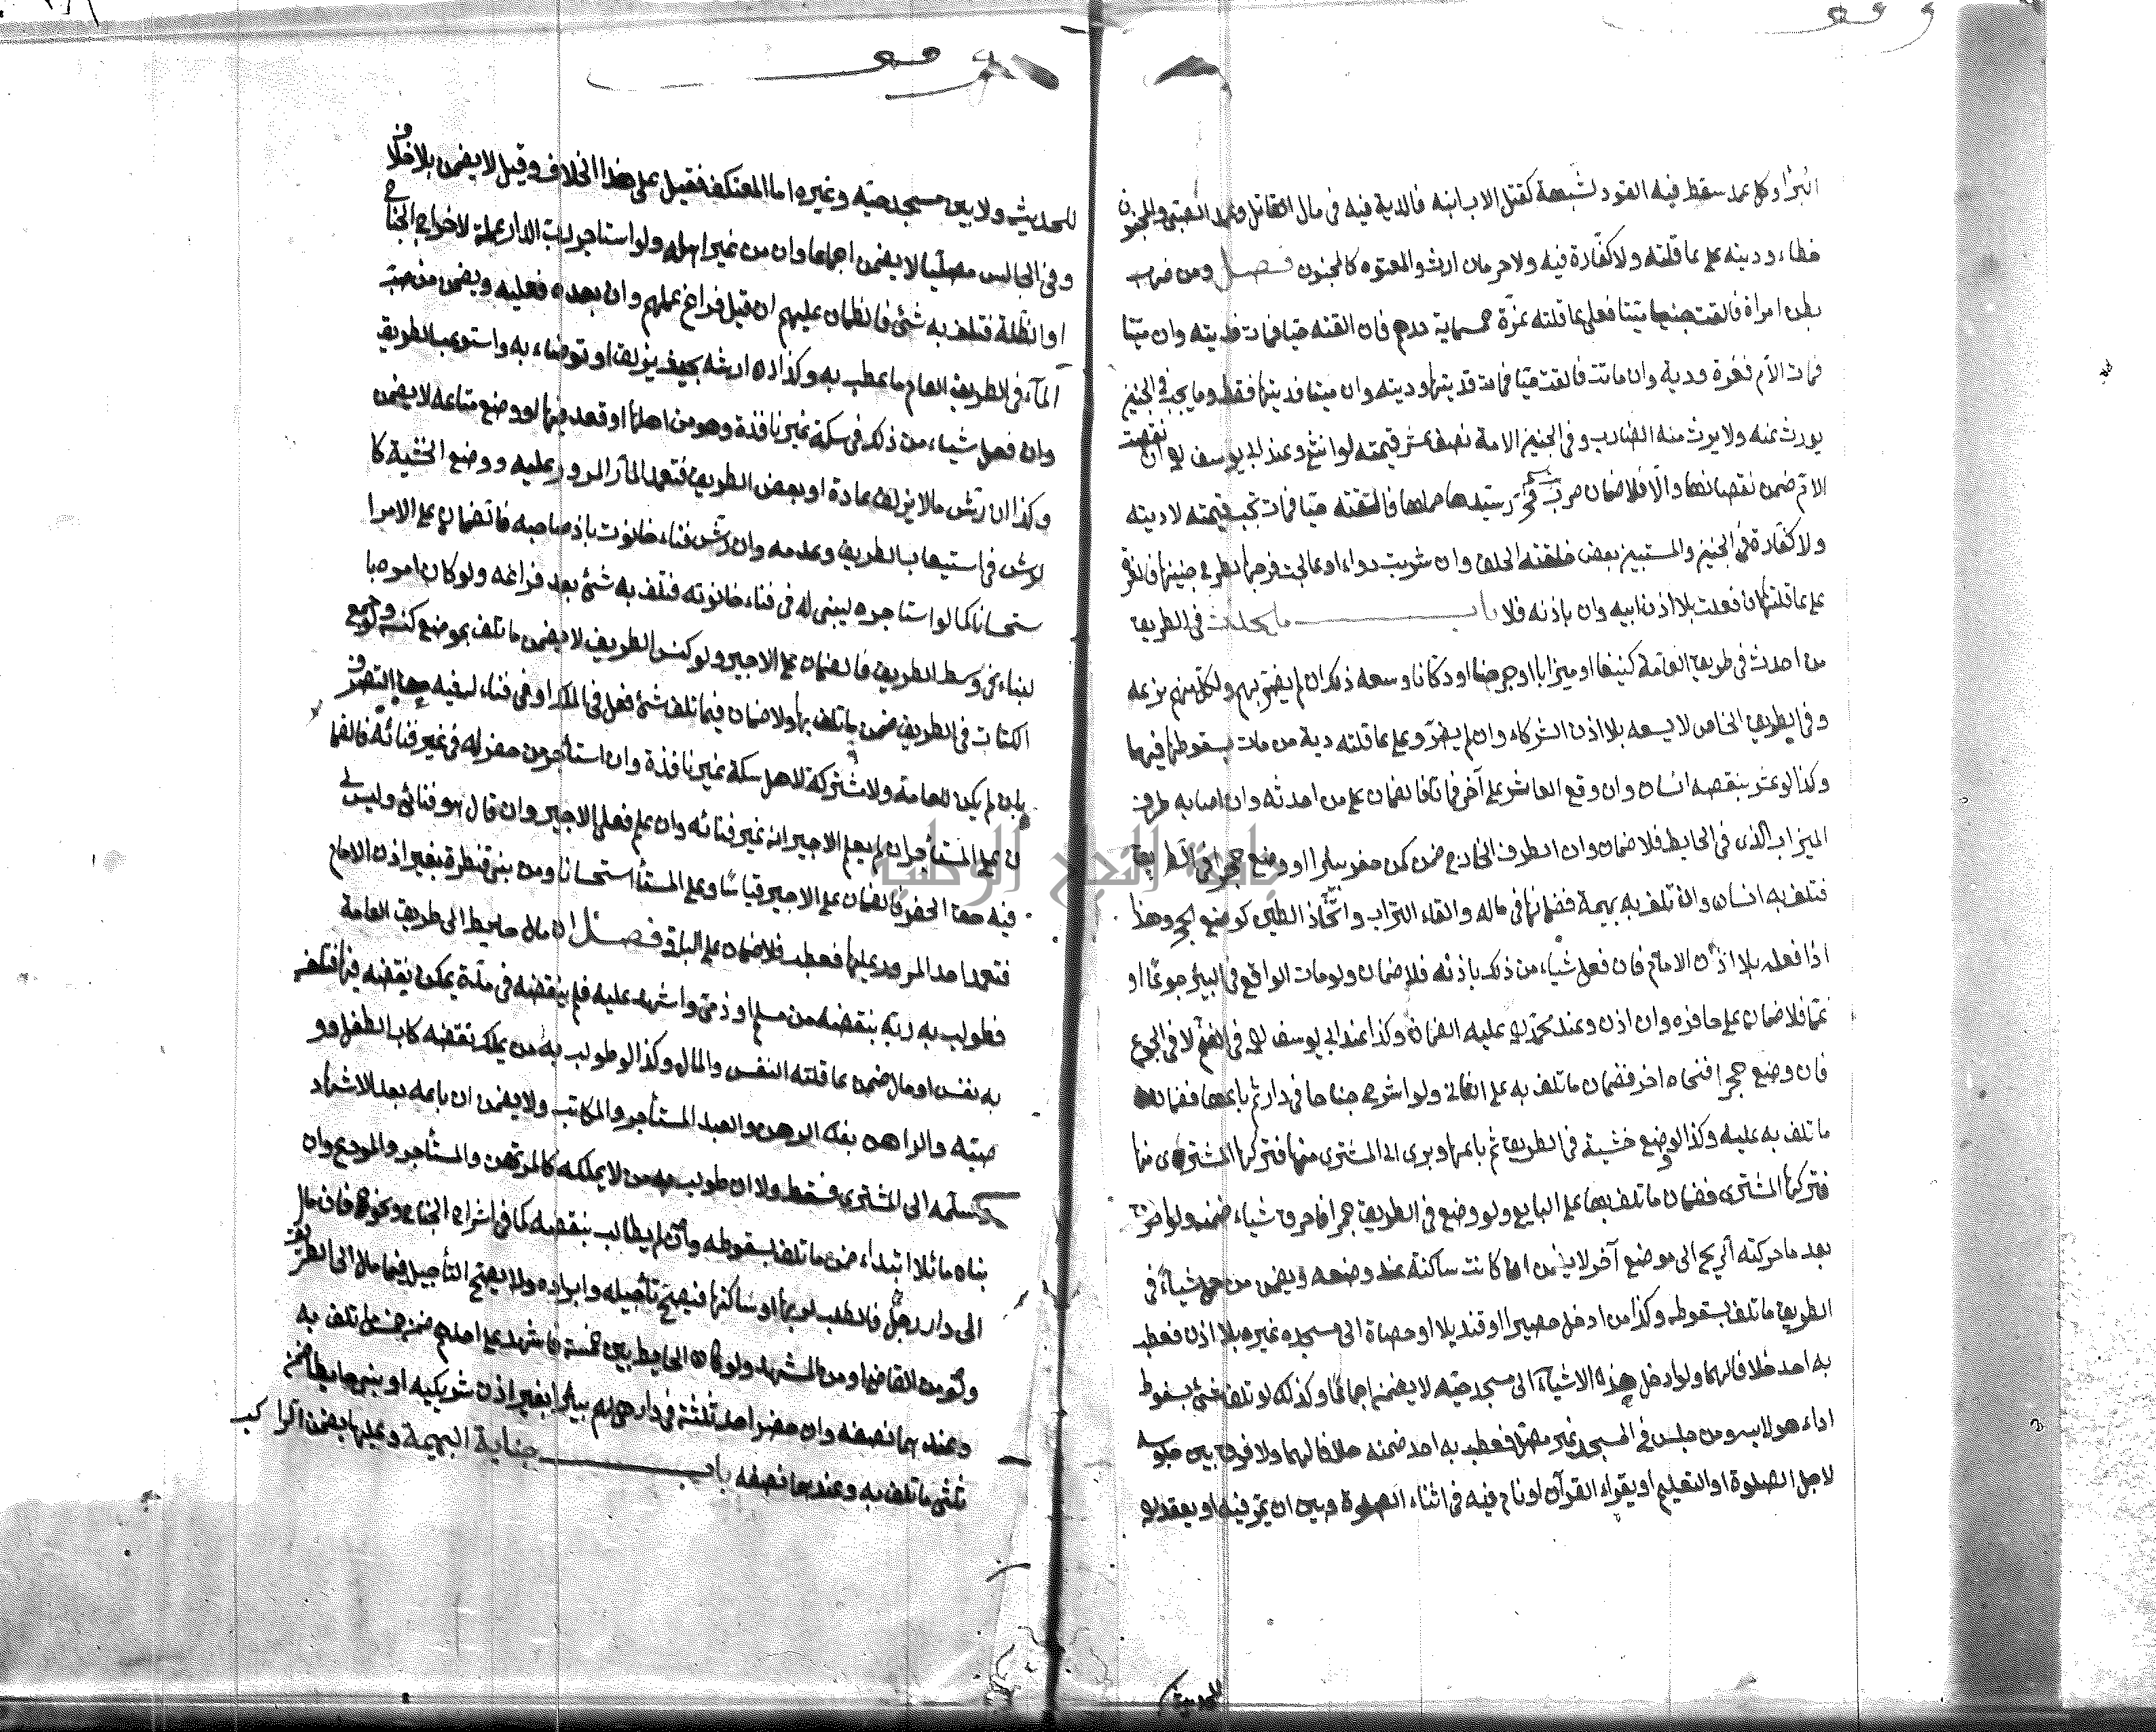 وقف
اثبرّا وكل عمد سقط فيه القود لشبهة كقتل الاب ابنه فالدية فيه فى مال القاتل وعمد الصبى والمجنون
خطاء وديته على عاقلته ولا كفارة فيه ولا حرمان ارث والمعتوه كالمجنون فصل ومن ضرب
بطن امراة فالقت جنينا ميتا فعلى عاقلته غرّة خمسماية درهم فان القته حيا فمات فديته وان ميتا
فمات الأم فغرة ودية وان ماتت فالقت حيا فمات فديتها وديته وان ميتا فديتها فقط وما يجب فى الجنين
يورث عنه ولا يرث منه الضارب وفى الجنين الامة نصف عشر قيمته لو انثى وعند ابى يوسف ان نقصت
الام ضمن نقصانها والّا فلا ضمان فحرّر سيّدها حملها فالقته حيا فمات تجب قيمته لا ديته
ولا كفّارة فى الجنين والمستبين بعض خلقته الخلق وان شربت دواء او عالجت فرجها لطرح جنينها فالغرة
على عاقلتها ان فعلت بلا اذن ابيه وان باذنه فلا باب ما يحدث فى الطريق
من احدث فى طريق العامة كنيفا او ميزابا او جرصنا او دكانا وسعه ذلك ان لم يضرّ بهم ولكل منهم نزعه
وفى الطريق الخاص لا يسعه بلا اذن الشركاء وان لم يضرّ وعلى عاقلته دية من مات بسقوطها فيهما
وكذا لو عثر بنقضه انسان وان وقع العاثر على آخر فماتا فالضمان على من احدثه وان اصابه طرف
الميزاب الذى فى الحايط فلا ضمان وان الطرف الخارج ضمن كمن حفر بئرا او وضع حجرا فى الطريق
فتلف به انسان وان تلف به بهيمة فضمانها فى ماله والقاء التراب واتّخاذ الطين كوضع الحجر وهذا
اذا فعله بلا اذن الامام فان فعل شياء من ذلك باذنه فلا ضمان ولو مات الواقع فى البئر جوعا او
غمّا فلا ضمان على حافره وان اذن وعند محمّد عليه الضمان وكذا عند ابى يوسف فى الغم لا فى الجوع
فان وضع حجرا فنحاه اخر فضمان ما تلف به على الثانى ولو اشرع جناحا فى دار ثم باعها فضمان
ما تلف به عليه وكذا لو وضع خشبة فى الطريق ثم باعها وبرئ الى المشترى منها فتركها المشترى
فتركها المشترى فضمان ما تلف بها على البايع ولو وضع فى الطريق جمرا فاحرق شياء ضمنه ولو احرق
بعد ما حركته الريح الى موضع آخر لا يضمن ان كانت ساكنة عند وضعه ويضمن من حمل شياء فى
الطريق ما تلف بسقوطه وكذا من ادخل حصيرا او قنديلا او حصاة الى مسجده غيره بلا اذن فعطب
به احد خلافا لهما ولو ادخل هذه الاشياء الى مسجد حيّه لا يضمن اجماعا وكذلك لو تلف شئ بسقوط
رداء هو لابسه ومن جلس فى المسجد غير مصلّ فعطب به احد ضمنه خلافا لهما ولا فرق بين جلوسه
لاجل الصلوة او التعليم او يقراء القرآن او نام فيه فى اثناء الصلوة وبين ان يمرّ فيه او يقعد
للحديث
وقف
للحديث ولا بين مسجد حيّه وغيره اما المعتكف فقيل على هذا الخلاف وقيل لا يضمن بلا خلاف
وفى الجالس مصلّيا لا يضمن اجماعا وان من غير اهله ولو استاجر ربّ الدار عملة لاخراج الجناح
او الظلّة فتلف به شئ فالضمان عليهم ان قبل فراغ عملهم وان بعده فعليه ويضمن من صبّ
المآء فى الطريق العام ما عطب به وكذا ان رشّه بحيث يزلق او توضاء به واستوعب الطريق
وان فعل شياء من ذلك فى سكة غير نافذة وهو من اهلها او قعد فيها او وضع متاعه لا يضمن
وكذا ان رشّ ما لا يزلق عادة او بعض الطريق فتعمد المآر المرور عليه ووضع الخشبة كا
لرش فى استيعاب الطريق وعدمه وان رشّ فناء حانوت باذن صاحبه فالضمان على الامر ا
ستحسانا كما لو استاجره ليبنى له فى فناء حانوته فتلف به شئ بعد فراغه ولو كان امره با
لبناء فى وسط الطريق فالضمان على الاجير ولو كنس الطريق لا يضمن ما تلف بموضع كنسه ولو جمع
الكناسة فى الطريق ضمن ما تلف بها ولا ضمان فيما تلف شئ فعل فى الملك او فى فناء له فيه حق التصرف
بان لم يكن للعامة ولا مشتركة لاهل سكة غير نافذة وان استاجر من حفر له فى غير فنائه فالضما
ن على المستأجر ان لم يعلم الاجير انه غير فنائه وان علم فعلى الاجير وان قال هو فنائى وليس لى
فيه حق الحفر فالضمان على الاجير قياسا وعلى المستأجر استحسانا ومن بنى قنطرة بغير اذن الامام
فتعمد احد المرور عليها فعطب فلا ضمان على البانى فصل ان مال حايط الى طريق العامة
فطولب به ربّه بنقضه من مسلم او ذمّى واشهد عليه فلم ينقضه فى مدّة يمكن نقضه فيها فتلف
به نفس او مال ضمن عاقلته النفس والمال وكذا لو طولب به من يملك نقضه كاب الطفل وو
صيّه والراهن بفك الرهن والعبد المستأجر والمكاتب ولا يضمن ان باعه بعد الاشهاد
وسلّمه الى المشترى فسقط ولا ان طولب به من لا يملكه كالمرتهن والمستأجر والمودع وان
بناه مائلا ابتداء ضمن ما تلف بسقوطه وان لم يطالب بنقضه كما فى اشراع الجناح ونحوه فان مال
الى دار رجل فالطلب لربها او ساكنها فيصحّ تأجيله وابراؤه ولا يصحّ التأجيل فيما مال الى الطريق
ولو من القاضى او من المشهد ولو كان الحايط بين خمسة فاشهد على احدهم ضمن خمس ما تلف به
وعندهما نصفه وان حفر احد ثلثة فى دار هى لهم بيرا بغير اذن شريكيه او بنى حايطا ضمن
ثلثى ما تلف به وعندهما نصفه باب جناية البهيمة وعليها يضمن الراكب